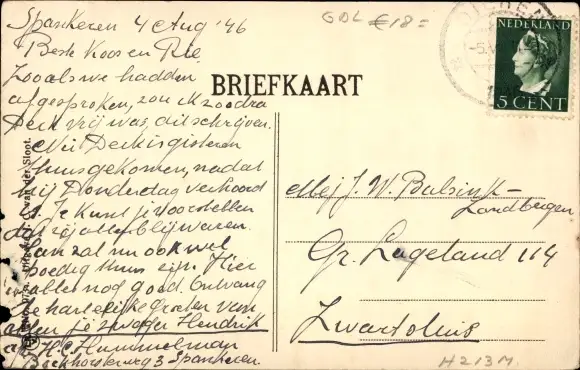 Spankeren 4 Aug '46
Beste Koos en Rie
Zooals we hadden
afgesproken, zou ik zoodra
Derk vrij was, dit schrijven.
Nu Derk is gisteren
thuisgekomen, nadat
hij Donderdag verhoord
is. Je kunt je voorstellen
dat zij allen blij waren.
Jan zal nu ook wel
spoedig thuis zijn. Hier
alles nog goed. Ontvang
de hartelijke groeten van
allen je zwager Hendrik
H.C. Hummelman
Bockhorsterweg 3 Spankeren
GDL €18=
BRIEFKAART
NEDERLAND
5 CENT
DIEREN
van der Sloot.
Mej J. W. Balsink-
Landbergen
Gr. Lageland 114
Zwartsluis
H213M.